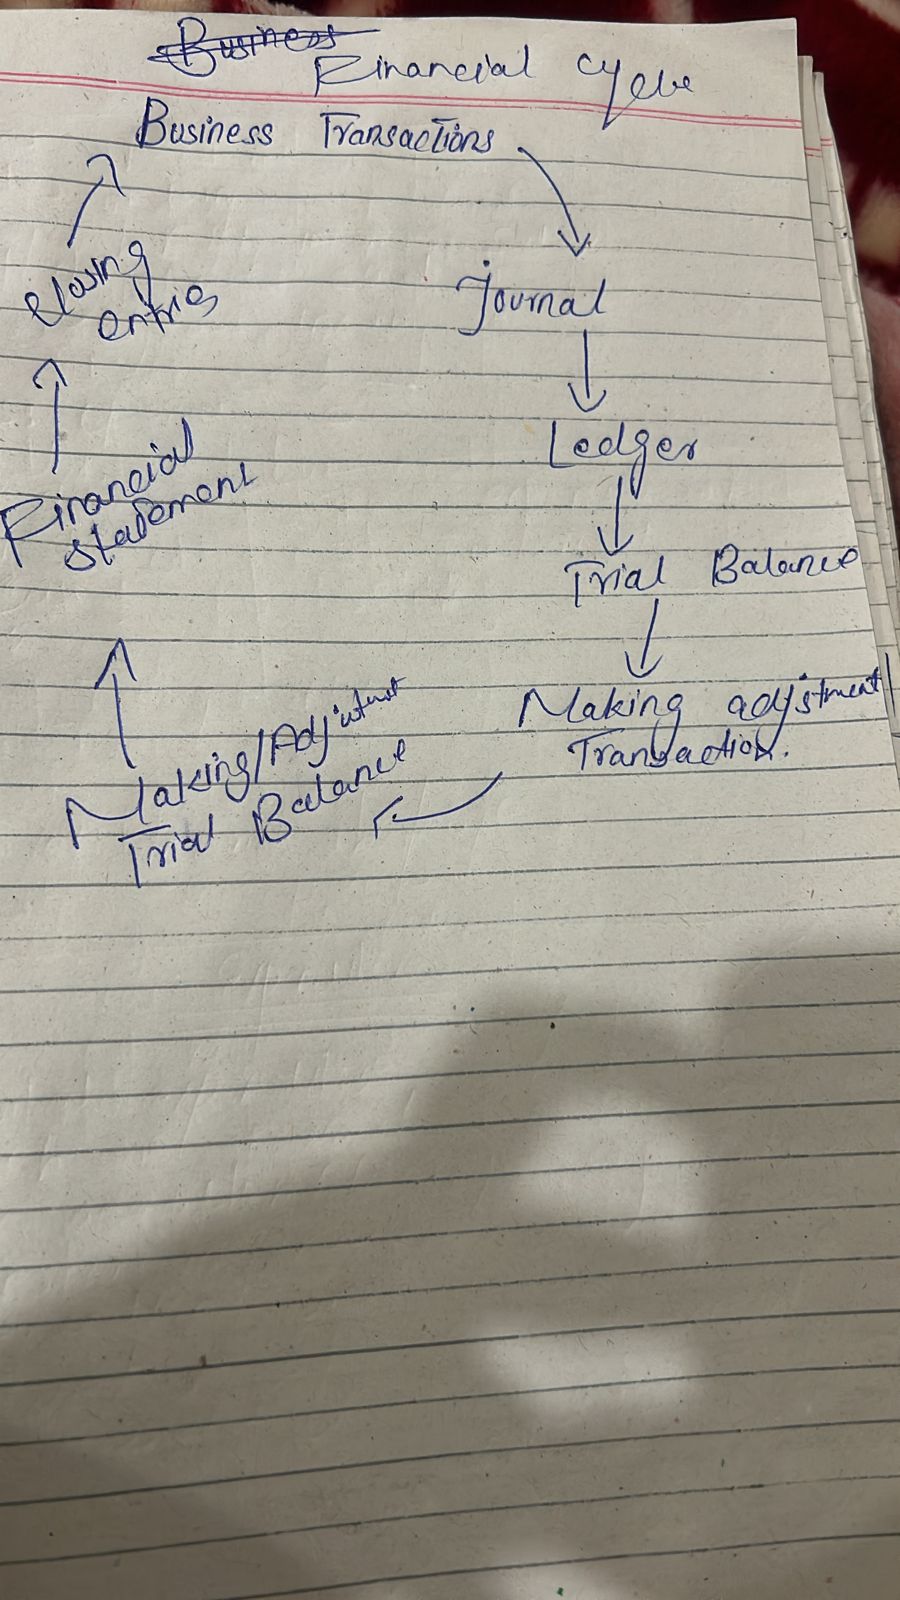 Business
Financial cycle
Business Transactions
Journal
Ledger
Trial Balance
Making adjstment
Transaction.
Making/Adjustmet
Trial Balance
Financial
statement
closing
entries